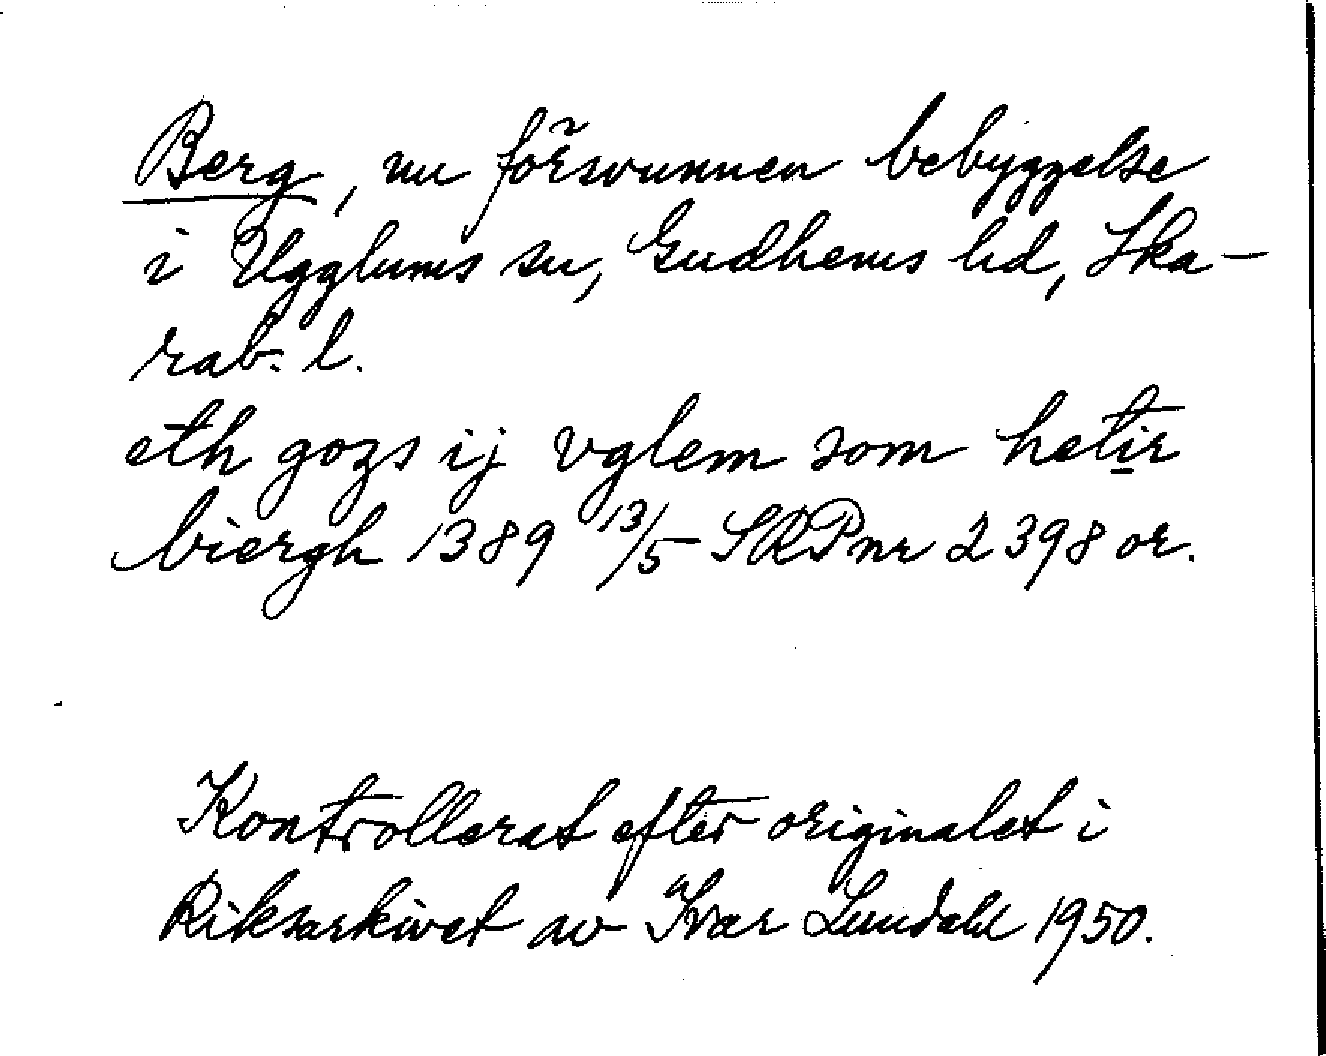 Berg, nu försvunnen bebyggelse
i Ugglums sn, Gudhems hd, Ska-
rab. l.
eth gozs ij vglem som hetir
biergh 1389 13/5 SRPnr 2398 or.
Kontrollerat efter originalet i
Riksarkivet av Ivar Lundahl 1950.